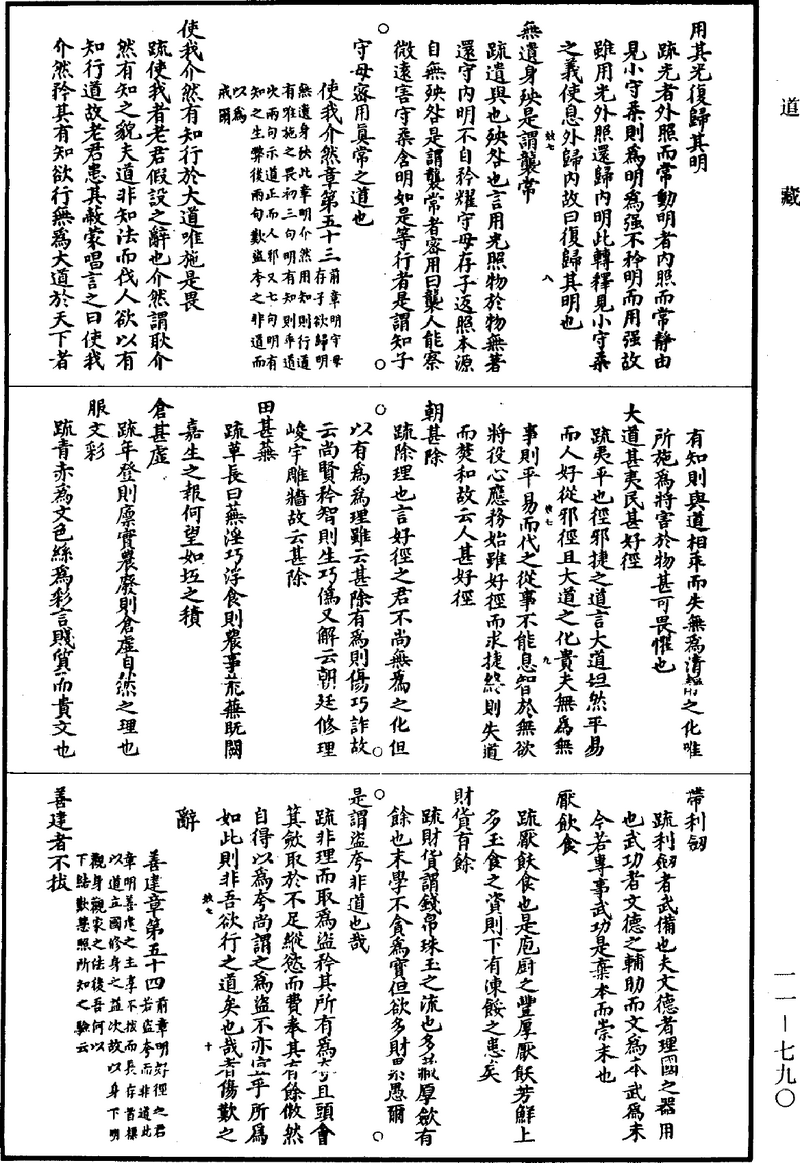 道藏
用其光復歸其明
疏光者外照而常動明者內照而常靜由
見小守柔則為明為强不矜明而用强故
雖用光外照還歸內明此轉釋見小守柔
之義使息外歸內故曰復歸其明也
無遺身殃是謂襲常
疏遺與也殃咎也言用光照物於物無著
還守內明不自矜耀守母存子返照本源
自無殃咎是謂襲常者密用曰襲人能察
微遠害守柔含明如是等行者是謂知子
守母密用真常之道也
使我介然章第五十三
前章明守母存子欲歸明
無遺身殃此章明介然用知則行道
有唯施之畏初三句明有知則乖道
次兩句示道正而人邪又七句明有
知之生弊後兩句歎盜夸之非道而
以為
戒爾
使我介然有知行於大道唯施是畏
疏使我者老君假設之辭也介然謂耿介
然有知之貌夫道非知法而伐人欲以有
知行道故老君患其敝蒙唱言之曰使我
介然矜其有知欲行無為大道於天下者
有知則與道相乖而失無為清靜之化唯
所施為將害於物甚可畏懼也
大道甚夷民甚好徑
疏夷平也徑邪捷之道言大道坦然平易
而人好從邪徑且大道之化貴夫無為無
事則平易而代之從事不能息智於無欲
將役心應務始雖好徑而求捷終則失道
而焚和故云人甚好徑
朝甚除
疏除理也言好徑之君不尚無為之化但
以有為為理雖云甚除有為則傷巧詐故
云尚賢矜智則生巧偽又解云朝廷修理
峻宇雕牆故云甚除
田甚蕪
疏草長曰蕪淫巧浮食則農事荒蕪既闕
嘉生之報何望如坻之積
倉甚虛
疏年登則廩實農廢則倉虛自然之理也
服文彩
疏青赤為文色絲為彩言賤質而貴文也
帶利劒
疏利劒者武備也夫文德者理國之器用
也武功者文德之輔助而文為本武為末
今若專事武功是棄本而崇末也
厭飲食
疏厭飫食也是庖厨之豐厚厭飫芳鮮上
多玉食之資則下有凍餒之患矣
財貨有餘
疏財貨謂錢帛珠玉之流也多藏厚斂有
餘也末學不貪為寶但欲多財累愚爾
是謂盜夸非道也哉
疏非理而取為盜矜其所有為夸且頭會
箕斂取於不足縱慾而費奉其有餘傲然
自得以為夸尚謂之為盜不亦宜乎所為
如此則非吾欲行之道矣也哉者傷歎之
辭
善建章第五十四
前章明好徑之君
若盜夸而非道此
章明善建之主享不拔而長存首標
以道立國修身之益次故以身下明
觀身觀家之法後吾何以
下結歎慧照所知之驗云
善建者不拔
一一—七九〇